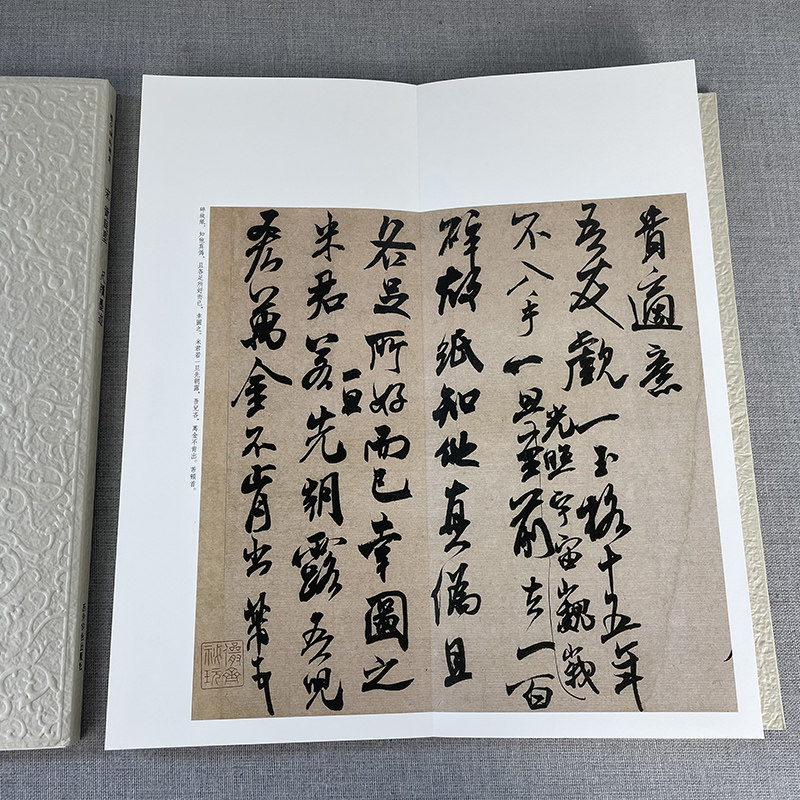 貴適意
吾友觀一玉格十五年
光照宇宙巍峩
不入手一旦至前去一百
碎故紙知他真偽且
各足所好而已幸圖之
米君若一旦先朝露吾兒
吝萬金不肯出芾頓首
儼齋秘玩
碎故紙，知他真偽，且各足所好而已，幸圖之。米君若一旦先朝露，吾兒吝，萬金不肯出。芾頓首。